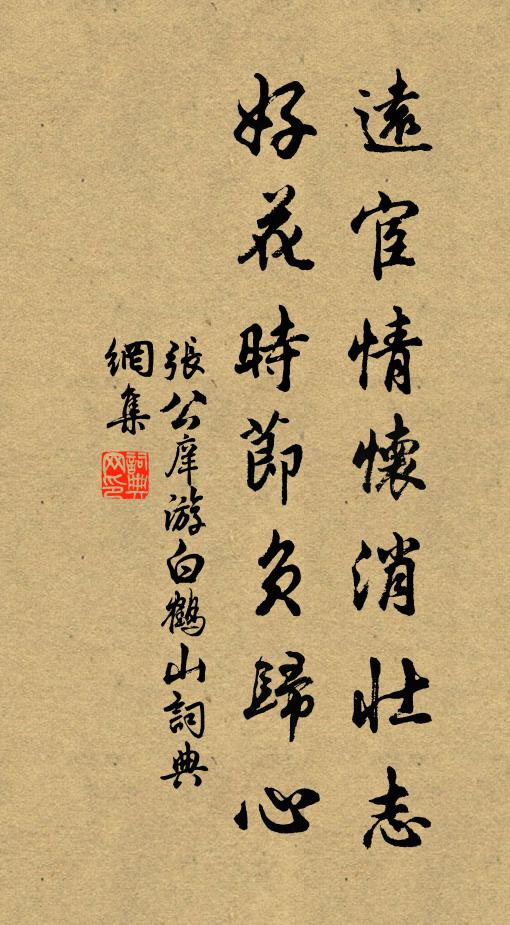 遠宦情懷消壯志
好花時節負歸心
張公庠游白鶴山詞典
網集
詞典
网印